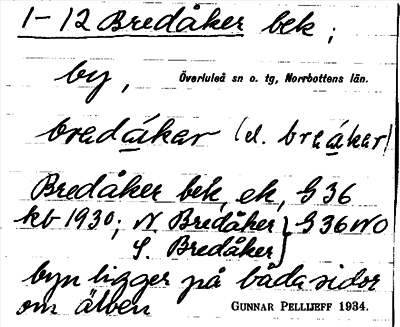 1-12 Bredåker bek;
by, Överluleå sn o. tg, Norrbottens län.
bredåker (el. breåker)
Bredåker bek, ek, G 36
kb 1930; N Bredåker } G 36 NO
S. Bredåker
byn ligger på båda sidor
om älven GUNNAR PELLIJEFF 1934.